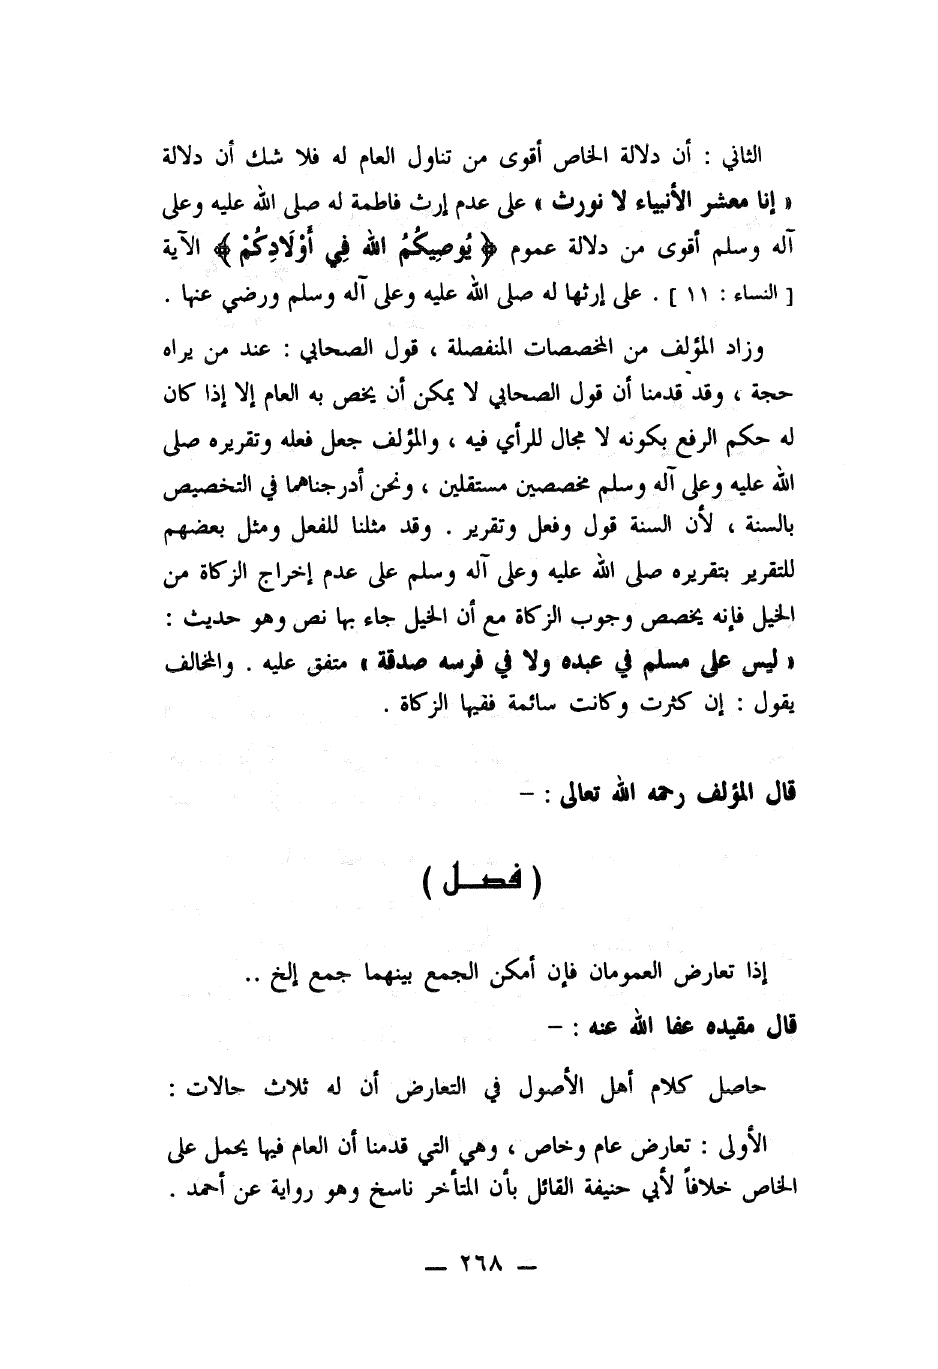 الثاني : أن دلالة الخاص أقوى من تناول العام له فلا شك أن دلالة
« إنا معشر الأنبياء لا نورث » على عدم إرث فاطمة له صلى الله عليه وعلى
آله وسلم أقوى من دلالة عموم ﴿ يُوصِيكُمُ الله فِي أَوْلَادِكُمْ ﴾ الآية
[ النساء : ١١ ] . على إرثها له صلى الله عليه وعلى آله وسلم ورضي عنها .
وزاد المؤلف من المخصصات المنفصلة ، قول الصحابي : عند من يراه
حجة ، وقد قدمنا أن قول الصحابي لا يمكن أن يخص به العام إلا إذا كان
له حكم الرفع بكونه لا مجال للرأي فيه ، والمؤلف جعل فعله وتقريره صلى
الله عليه وعلى آله وسلم مخصصين مستقلين ، ونحن أدرجناهما في التخصيص
بالسنة ، لأن السنة قول وفعل وتقرير . وقد مثلنا للفعل ومثل بعضهم
للتقرير بتقريره صلى الله عليه وعلى آله وسلم على عدم إخراج الزكاة من
الخيل فإنه يخصص وجوب الزكاة مع أن الخيل جاء بها نص وهو حديث :
« ليس على مسلم في عبده ولا في فرسه صدقة » متفق عليه . والمخالف
يقول : إن كثرت وكانت سائمة ففيها الزكاة .
قال المؤلف رحمه الله تعالى : –
( فصـــل )
إذا تعارض العمومان فإن أمكن الجمع بينهما جمع إلخ ..
قال مقيده عفا الله عنه : –
حاصل كلام أهل الأصول في التعارض أن له ثلاث حالات :
الأولى : تعارض عام وخاص ، وهي التي قدمنا أن العام فيها يحمل على
الخاص خلافاً لأبي حنيفة القائل بأن المتأخر ناسخ وهو رواية عن أحمد .
— ٢٦٨ —